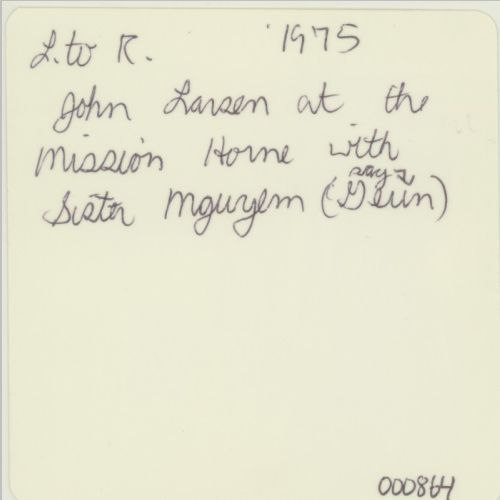 L. to R. 1975
John Larsen at the
Mission Home with
says
Sister Mguyem (Geun)
000864